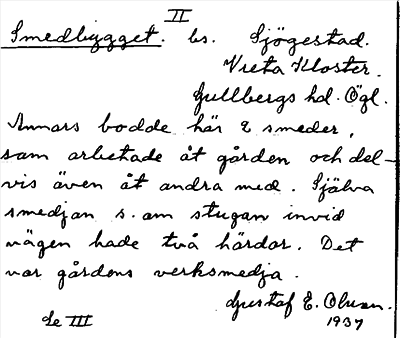 II
Smedbygget. bs. Sjögestad.
Vreta Kloster.
Gullbergs hd. Ögl.
Annars bodde här 2 smeder,
som arbetade åt gården och del-
vis även åt andra med. Själva
smedjan s. om stugan invid
vägen hade två härdar. Det
var gårdens verksmedja.
Gustaf E. Olsson.
Se III 1937